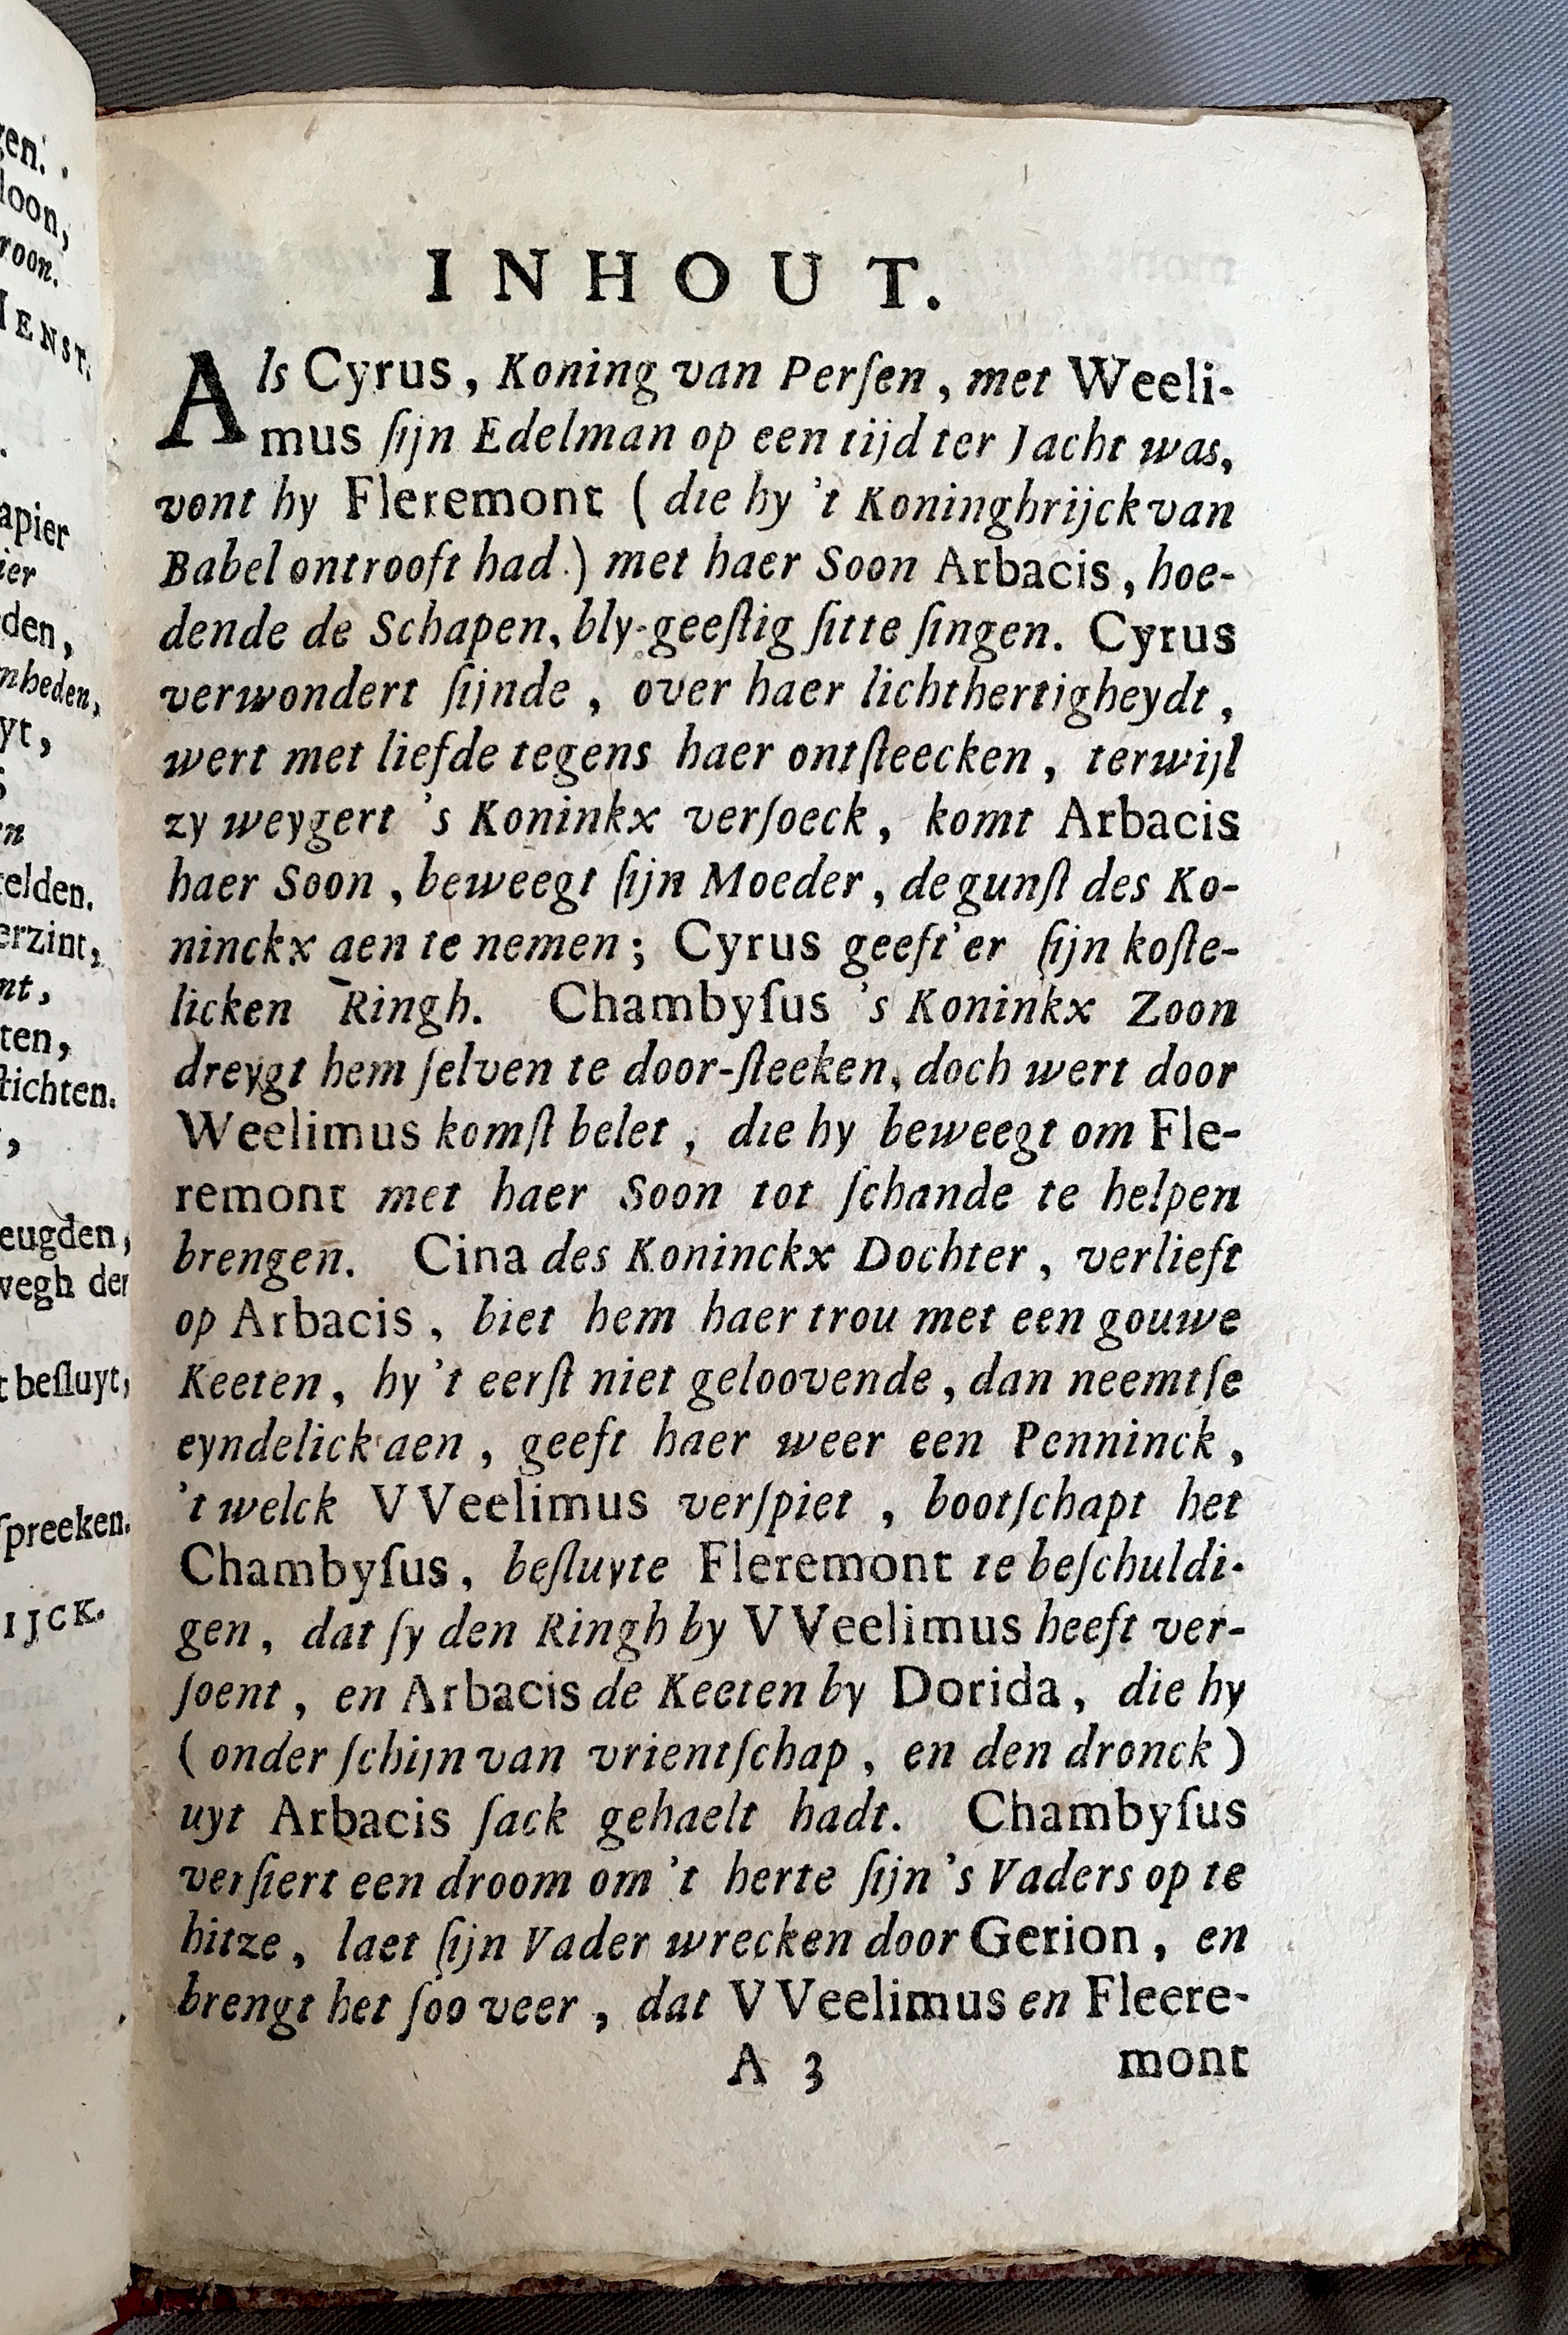 gen.
loon,
roon.
IENST.
apier
ier
den,
mheden,
yt,
en
elden.
erzint,
nt,
ten,
ſtichten.
eugden,
wegh der
t beſluyt,
ſpreeken.
IJCK.
INHOUT.
Als Cyrus, Koning van Perſen, met Weeli-
mus ſijn Edelman op een tijd ter Jacht was,
vont hy Fleremont ( die hy 't Koninghrijck van
Babel ontrooft had.) met haer Soon Arbacis, hoe-
dende de Schapen, bly-geeſtig ſitte ſingen. Cyrus
verwondert ſijnde, over haer lichthertigheydt,
wert met liefde tegens haer ontſteecken, terwijl
zy weygert 's Koninkx verſoeck, komt Arbacis
haer Soon, beweegt ſijn Moeder, de gunſt des Ko-
ninckx aen te nemen; Cyrus geeft'er ſijn koſte-
licken Ringh. Chambyſus 's Koninkx Zoon
dreygt hem ſelven te door-ſteeken, doch wert door
Weelimus komſt belet, die hy beweegt om Fle-
remont met haer Soon tot ſchande te helpen
brengen. Cina des Koninckx Dochter, verlieft
op Arbacis, biet hem haer trou met een gouwe
Keeten, hy 't eerſt niet geloovende, dan neemtſe
eyndelick aen, geeft haer weer een Penninck,
't welck VVeelimus verſpiet, bootſchapt het
Chambyſus, beſluyte Fleremont te beſchuldi-
gen, dat ſy den Ringh by VVeelimus heeft ver-
ſoent, en Arbacis de Keeten by Dorida, die hy
( onder ſchijn van vrientſchap, en den dronck )
uyt Arbacis ſack gehaelt hadt. Chambyſus
verſiert een droom om 't herte ſijn 's Vaders op te
hitze, laet ſijn Vader wrecken door Gerion, en
brengt het ſoo veer, dat VVeelimus en Fleere-
A 3 mont